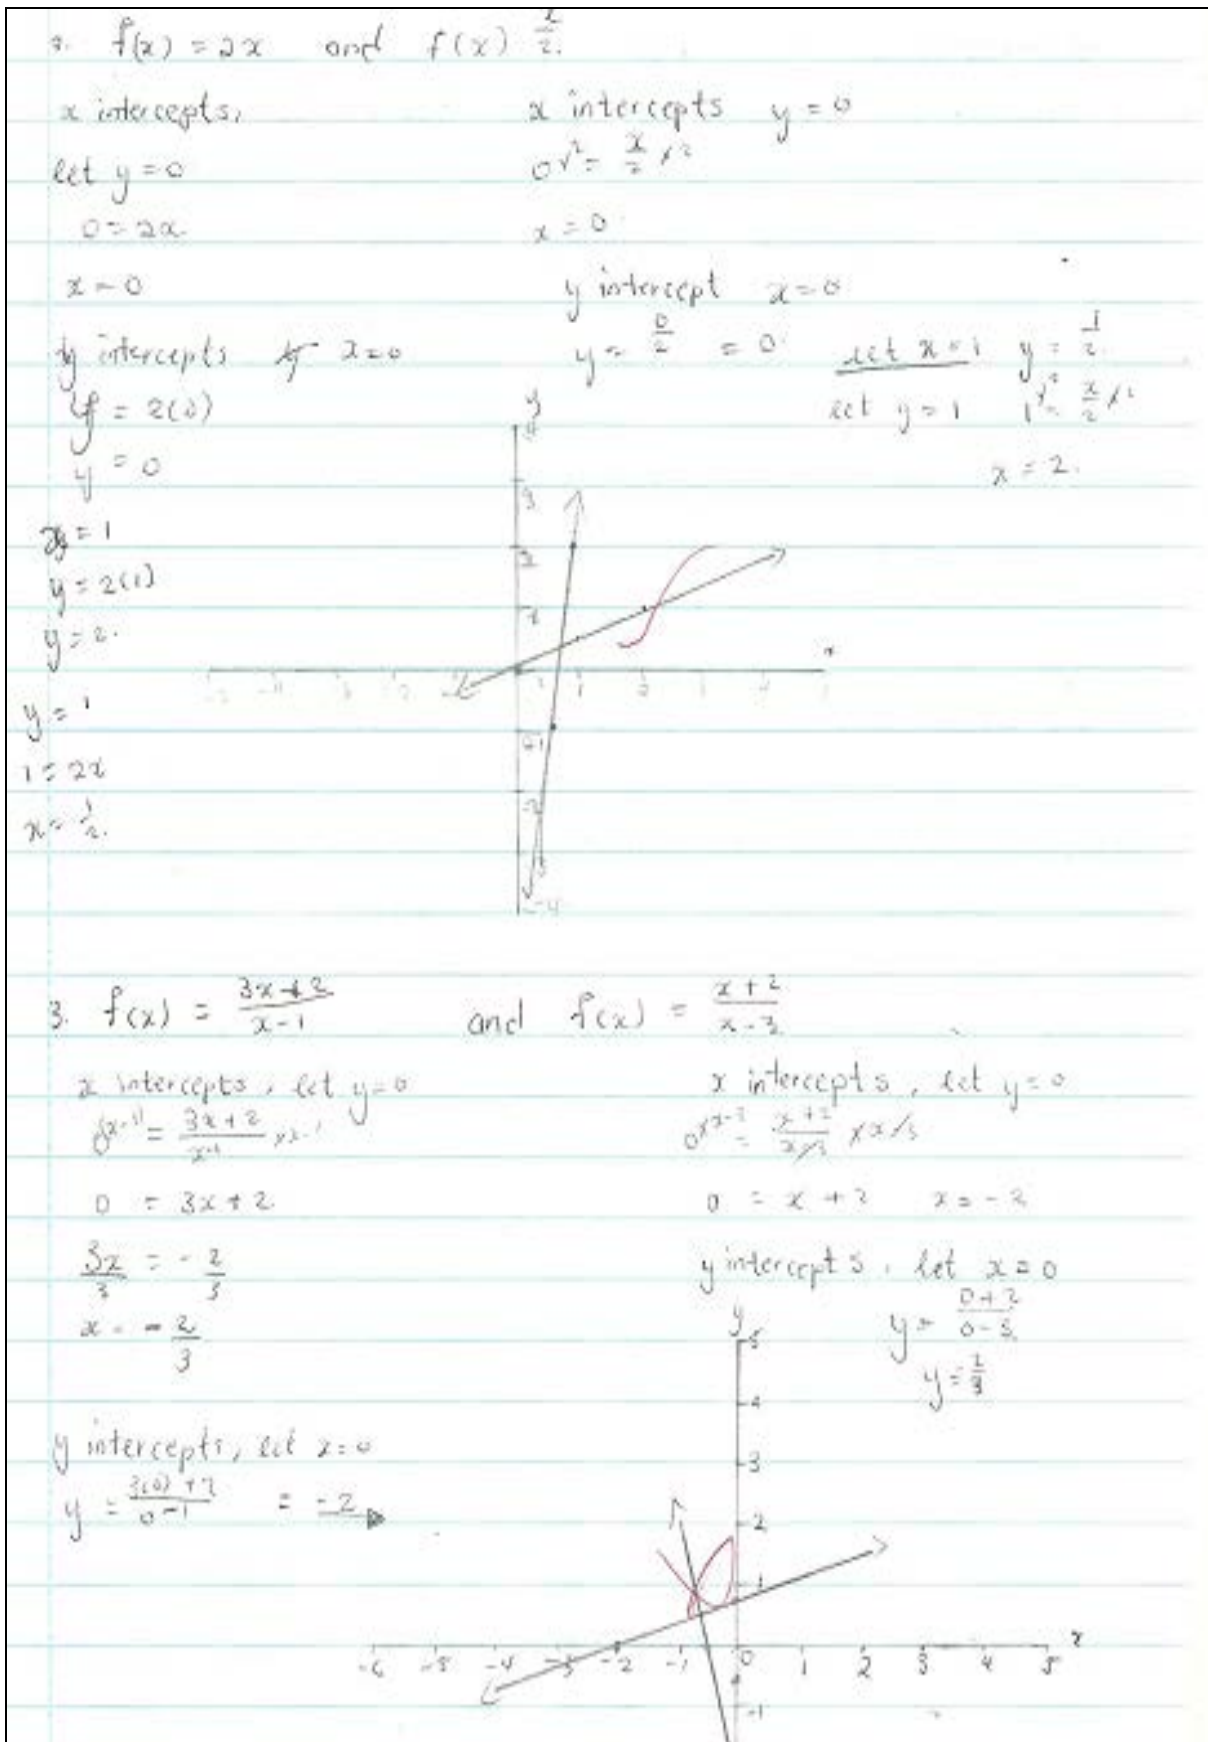 2. f(x) = 2x and f(x) x/2.
x intercepts,
let y = 0
0 = 2x.
x = 0
y intercepts x = 0
y = 2(0)
y = 0
x = 1
y = 2(1)
y = 2.
y = 1
1 = 2x
x = 1/2.
x intercepts y = 0
0 x 2 = x/2 x 2
x = 0
y intercept x = 0
y = 0/2 = 0
let x = 1 y = 1/2.
let y = 1 1 x 2 = x/2 x 2
x = 2.
y
4
3
2
1
x
-1
-2
-4
3. f(x) = 3x + 2 / x - 1 and f(x) = x + 2 / x - 3
x intercepts, let y = 0
0 x-1 = 3x + 2 / x-1 x x-1
0 = 3x + 2
3x/3 = - 2/3
x = - 2/3
y intercepts, let x = 0
y = 3(0) + 2 / 0 - 1 = -2
x intercepts, let y = 0
0 x x-3 = x + 2 / x-3 x x-3
0 = x + 2 x = -2
y intercepts, let x = 0
y = 0 + 2 / 0 - 3
y = 2/3
y
5
4
3
2
1
-6 -5 -4 -3 -2 -1 0 1 2 3 4 5 x
-1